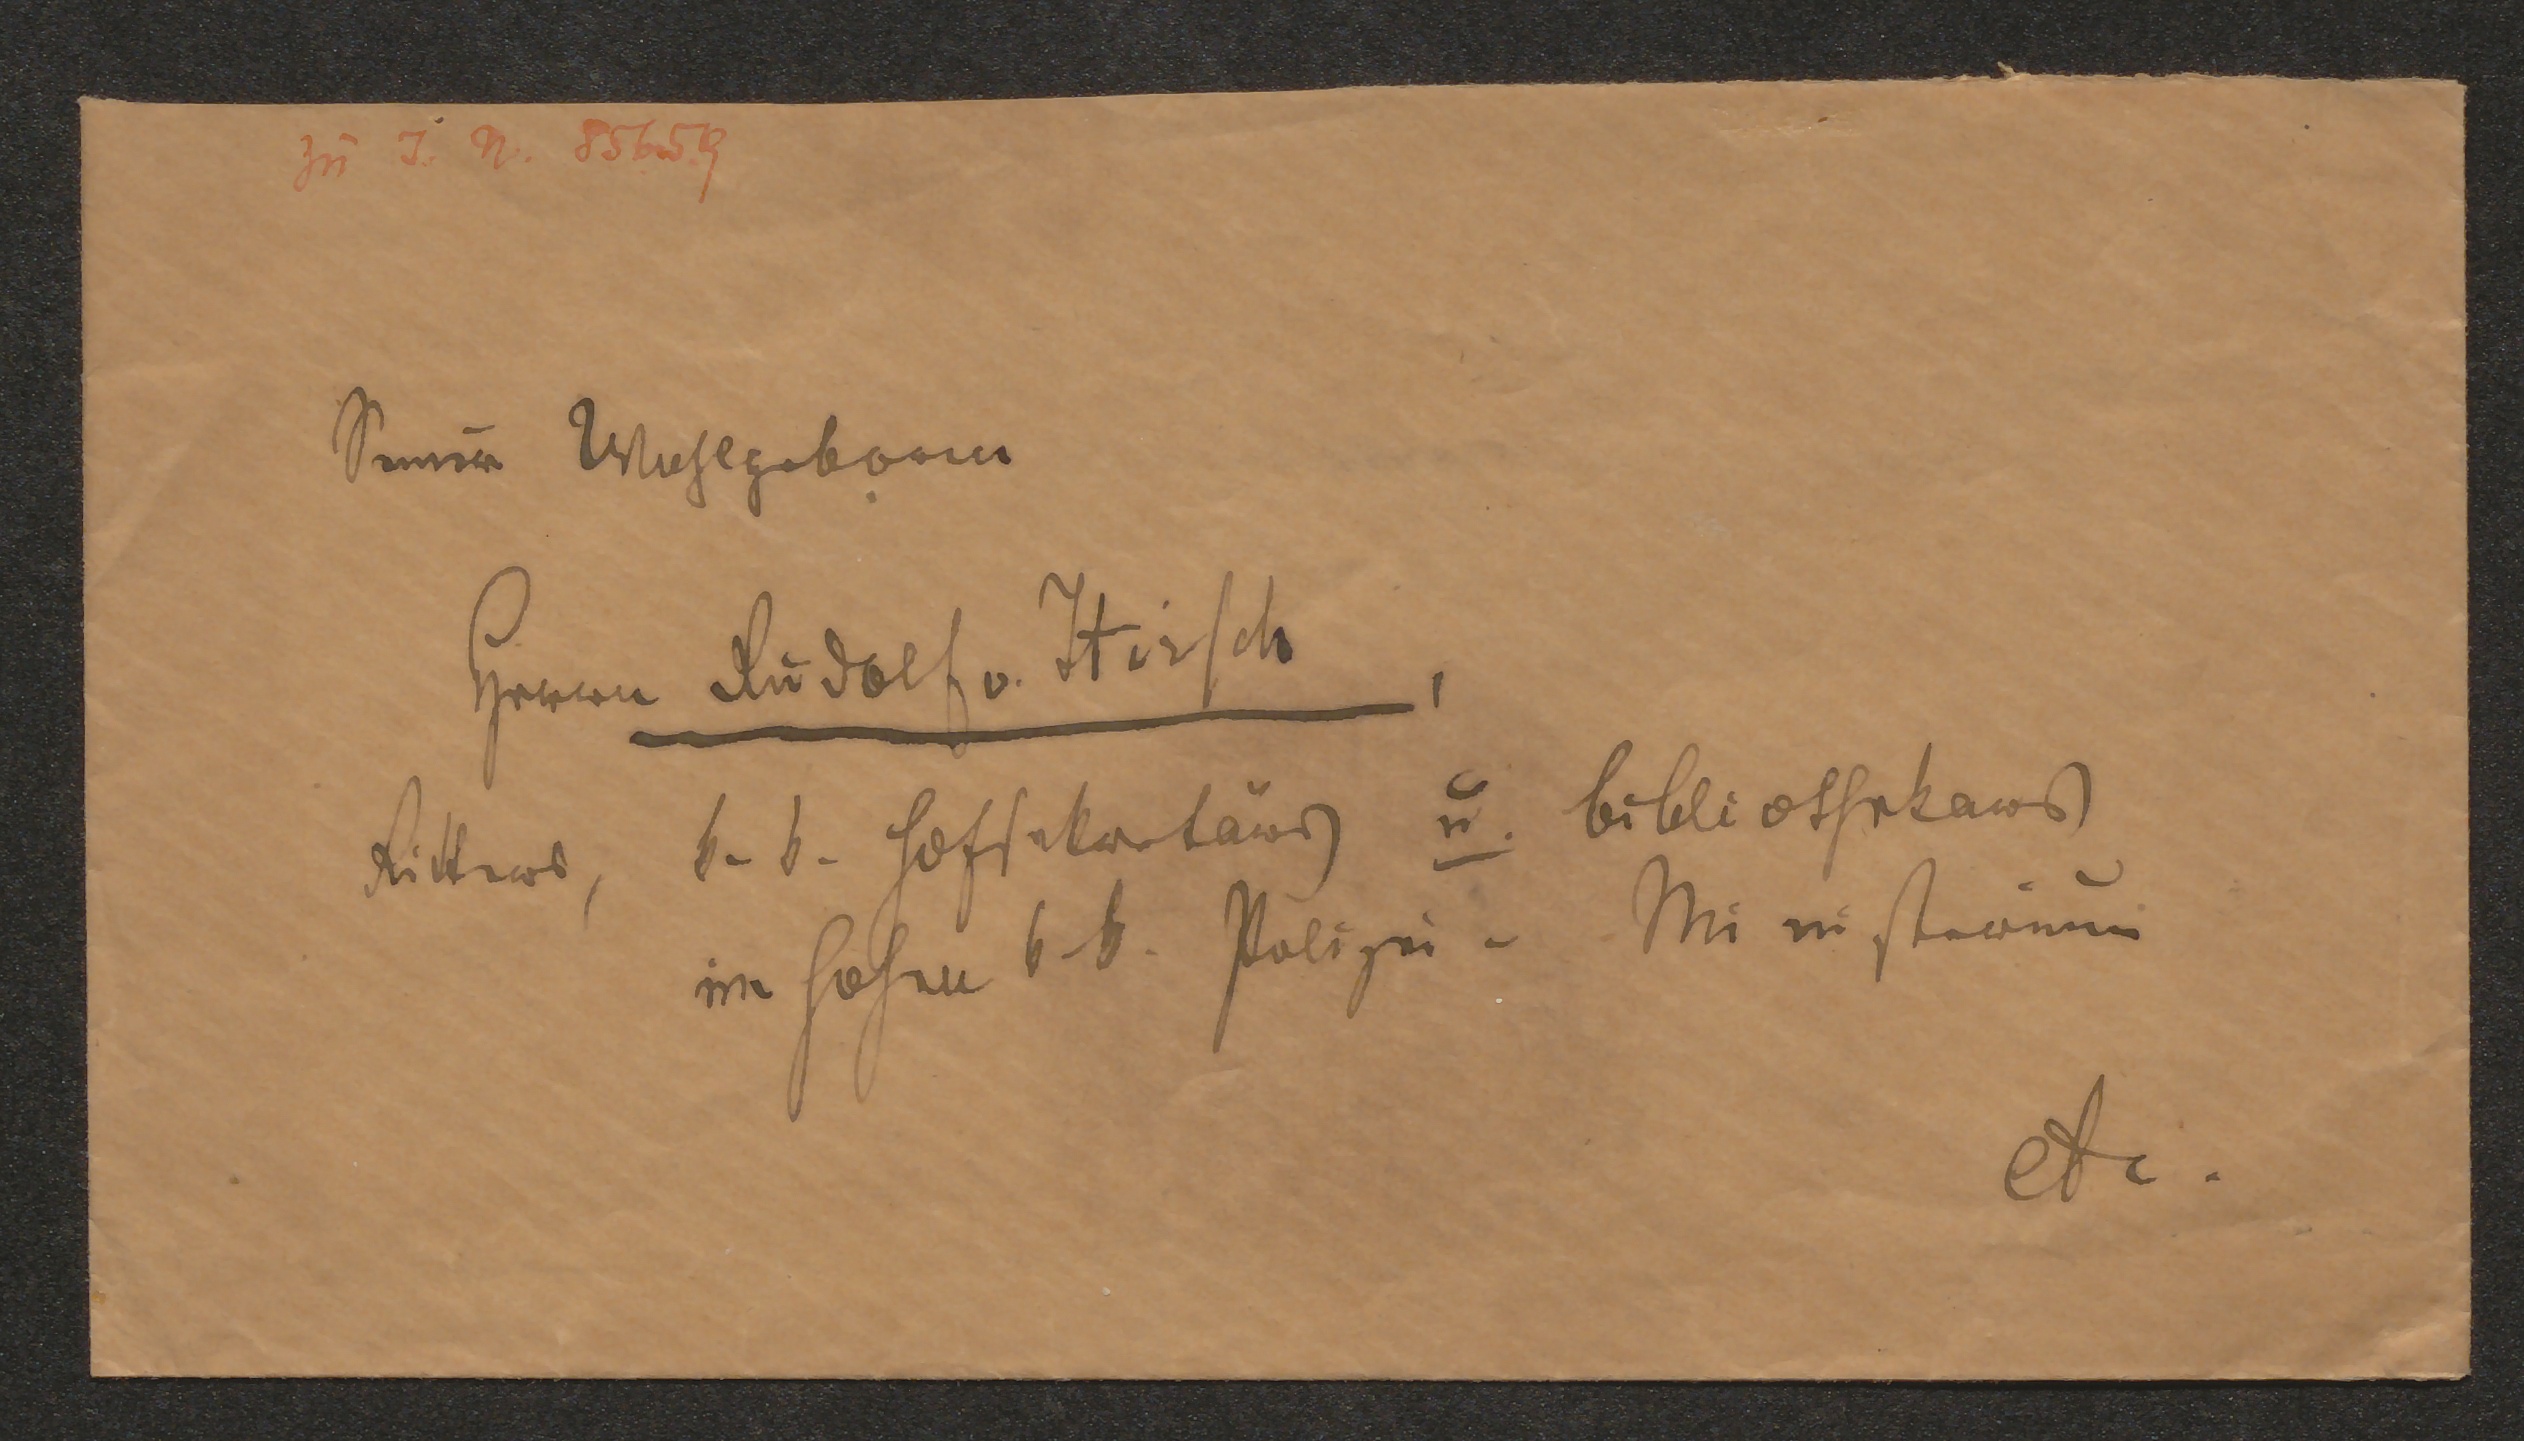 zu I. N. 85659
Seiner Wohlgeboren
Herrn Rudolf v. Hirsch,
Ritters, k. k. Hofsekretärs u. Bibliothekars
im hohen k. k. Polizei - Ministerium
etc.